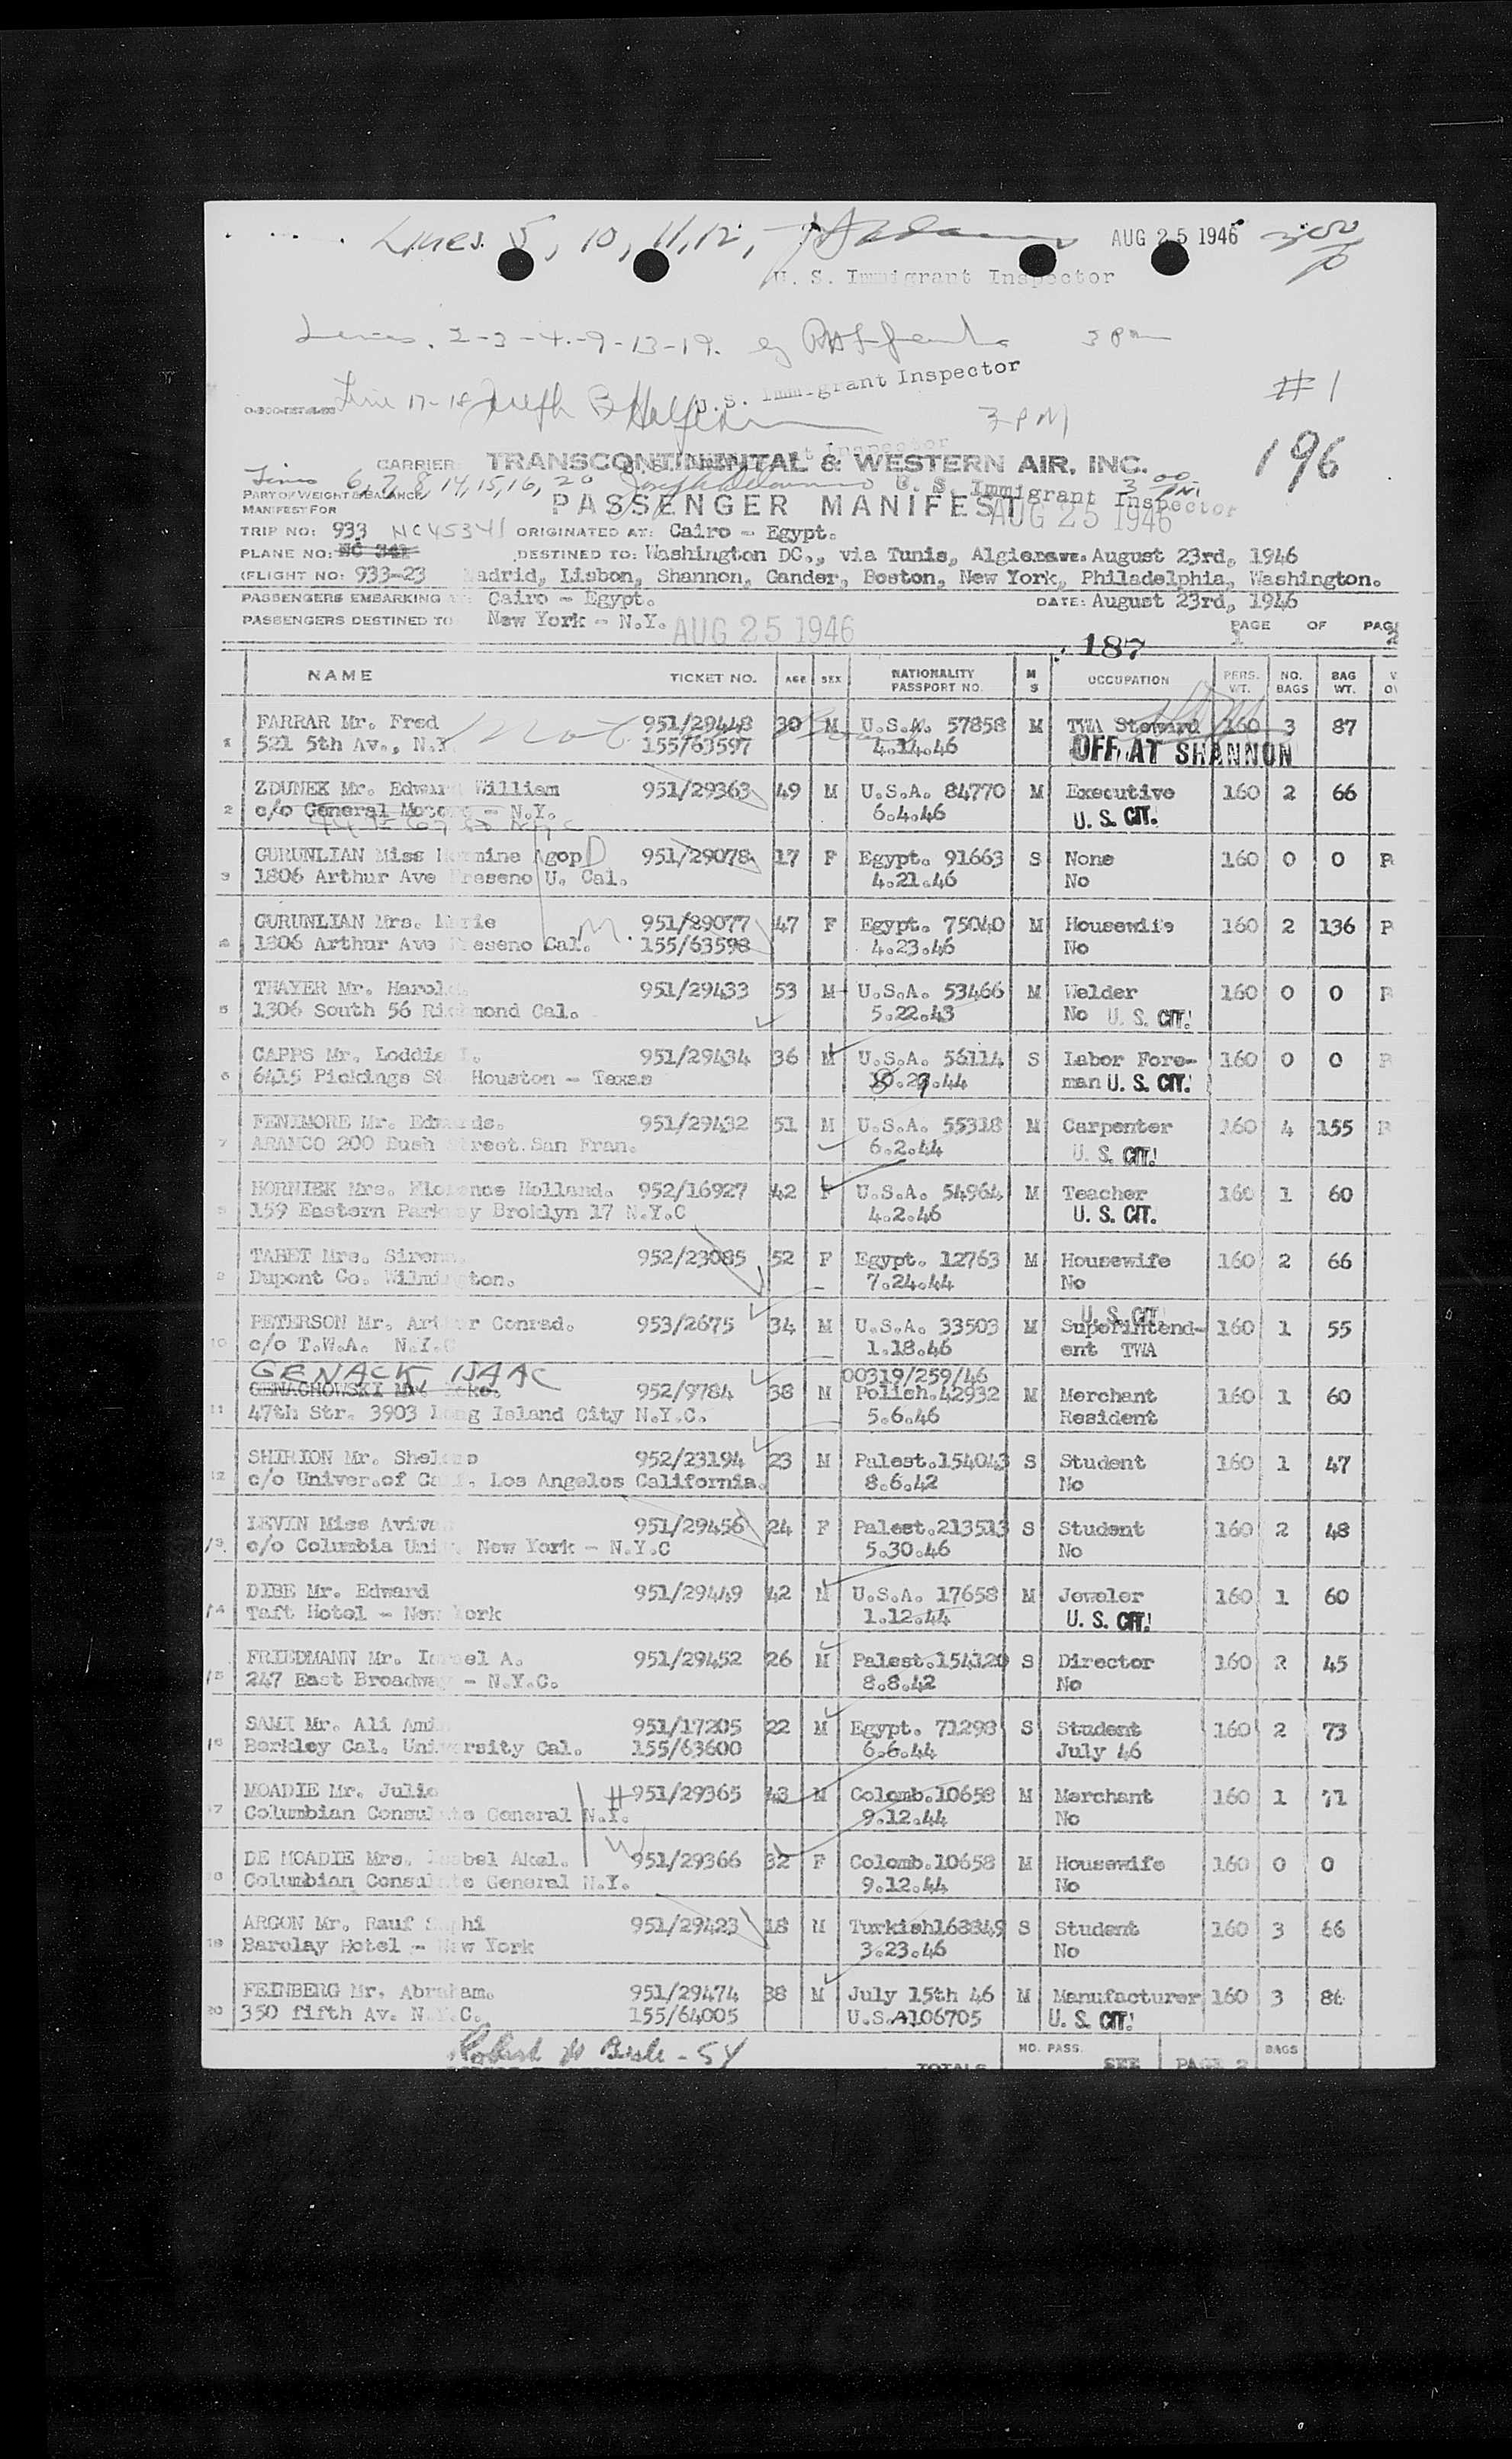 Lines. 5, 10, 11, 12, AUG 25 1946 3 00
U. S. Immigrant Inspector
Lines. 2-3-4.-9-13-19. by 3 PM
U. S. Immigrant Inspector
Line 17-18 Joseph B 3 PM
#1
196
CARRIER TRANSCONTINENTAL & WESTERN AIR, INC.
Lines 6, 7, 8, 14, 15, 16, 20 U. S. Immigrant Inspector 3 00 PM
PART OF WEIGHT & BALANCE
MANIFEST FOR PASSENGER MANIFEST AUG 25 1946
TRIP NO: 933 NC45341 ORIGINATED AT: Cairo - Egypt.
PLANE NO: NC 341 DESTINED TO: Washington DC., via Tunis, Algiers August 23rd, 1946
(FLIGHT NO: 933-23 Madrid, Lisbon, Shannon, Gander, Boston, New York, Philadelphia, Washington.
PASSENGERS EMBARKING Cairo - Egypt. DATE: August 23rd, 1946
PASSENGERS DESTINED TO New York - N.Y. AUG 25 1946 PAGE 1 OF PAG 2
187
NAME TICKET NO. AGE SEX NATIONALITY PASSPORT NO. M S OCCUPATION PERS. WT. NO. BAGS BAG WT.
FARRAR Mr. Fred 951/29448 30 M U.S.A. 57858 M TWA Steward 160 3 87
1 521 5th Av., N.Y. 155/63597 4.14.46 OFF AT SHANNON
ZDUNEK Mr. Edward William 951/29363 49 M U.S.A. 84770 M Executive 160 2 66
2 c/o General Motors - N.Y. 6.4.46 U. S. CIT.
GURUNLIAN Miss H mine Agop 951/29078 17 F Egypt. 91663 S None 160 0 0 R
3 1806 Arthur Ave Freseno U. Cal. 4.21.46 No
GURUNLIAN Mrs. Marie 951/29077 47 F Egypt. 75040 M Housewife 160 2 136 R
4 1806 Arthur Ave Freseno Cal. 155/63598 4.23.46 No
THAYER Mr. Harold 951/29433 53 M U.S.A. 53466 M Welder 160 0 0 R
5 1306 South 56 Richmond Cal. 5.22.43 No U. S. CIT.
CAPPS Mr. Loddie 951/29434 36 M U.S.A. 56114 S Labor Fore- 160 0 0 R
6 6415 Pickings St Houston - Texas .44 man U. S. CIT.
FENIMORE Mr. Edwards. 951/29432 51 M U.S.A. 55318 M Carpenter 160 4 155 R
7 ARAMCO 200 Bush Street.San Fran. 6.2.44 U. S. CIT.
HORNIEK Mrs. Florence Holland. 952/16927 42 F U.S.A. 54964 M Teacher 160 1 60
8 159 Eastern Parkway Broklyn 17 N.Y.C 4.2.46 U. S. CIT.
TABET Mrs. Sirena. 952/23085 52 F Egypt. 12763 M Housewife 160 2 66
9 Dupont Co. Wilmington. 7.24.44 No
U. S. CIT
PETERSON Mr. Arthur Conrad. 953/2675 34 M U.S.A. 33503 M Superintend- 160 1 55
10 c/o T.W.A. N.Y.C 1.18.46 ent TWA
GENACK ISAAC 00319/259/46
GENACHOWSKI 952/9784 38 M Polish.42932 M Merchant 160 1 60
11 47th Str. 3903 Long Island City N.Y.C. 5.6.46 Resident
SHIRION Mr. Shelomo 952/23194 23 M Palest.154043 S Student 160 1 47
12 c/o Univer.of Calif. Los Angelos California. 8.6.42 No
LEVIN Miss Aviva 951/29456 24 F Palest.213513 S Student 160 2 48
13 c/o Columbia Univ. New York - N.Y.C 5.30.46 No
DIBE Mr. Edward 951/29449 42 M U.S.A. 17658 M Jeweler 160 1 60
14 Taft Hotel - New York 1.12.44 U. S. CIT.
FRIEDMANN Mr. Israel A. 951/29452 26 M Palest.154120 S Director 160 2 45
15 247 East Broadway - N.Y.C. 8.8.42 No
SAMI Mr. Ali Amin 951/17205 22 M Egypt. 71298 S Student 160 2 73
16 Berkley Cal. University Cal. 155/63600 6.6.44 July 46
MOADIE Mr. Julio 951/29365 43 M Colomb.10658 M Merchant 160 1 71
17 Columbian Consulate General N.Y. 9.12.44 No
DE MOADIE Mrs. Isabel Akel. 951/29366 32 F Colomb.10658 M Housewife 160 0 0
18 Columbian Consulate General N.Y. 9.12.44 No
ARGON Mr. Rauf Suphi 951/29423 18 M Turkish168849 S Student 160 3 66
19 Barclay Hotel - New York 3.23.46 No
FEINBERG Mr. Abraham. 951/29474 38 M July 15th 46 M Manufacturer 160 3 86
20 350 fifth Av. N.Y.C. 155/64005 U.S.A106705 U. S. CIT.
Robert - 54 TOTALS NO. PASS. SEE PAGE 2 BAGS